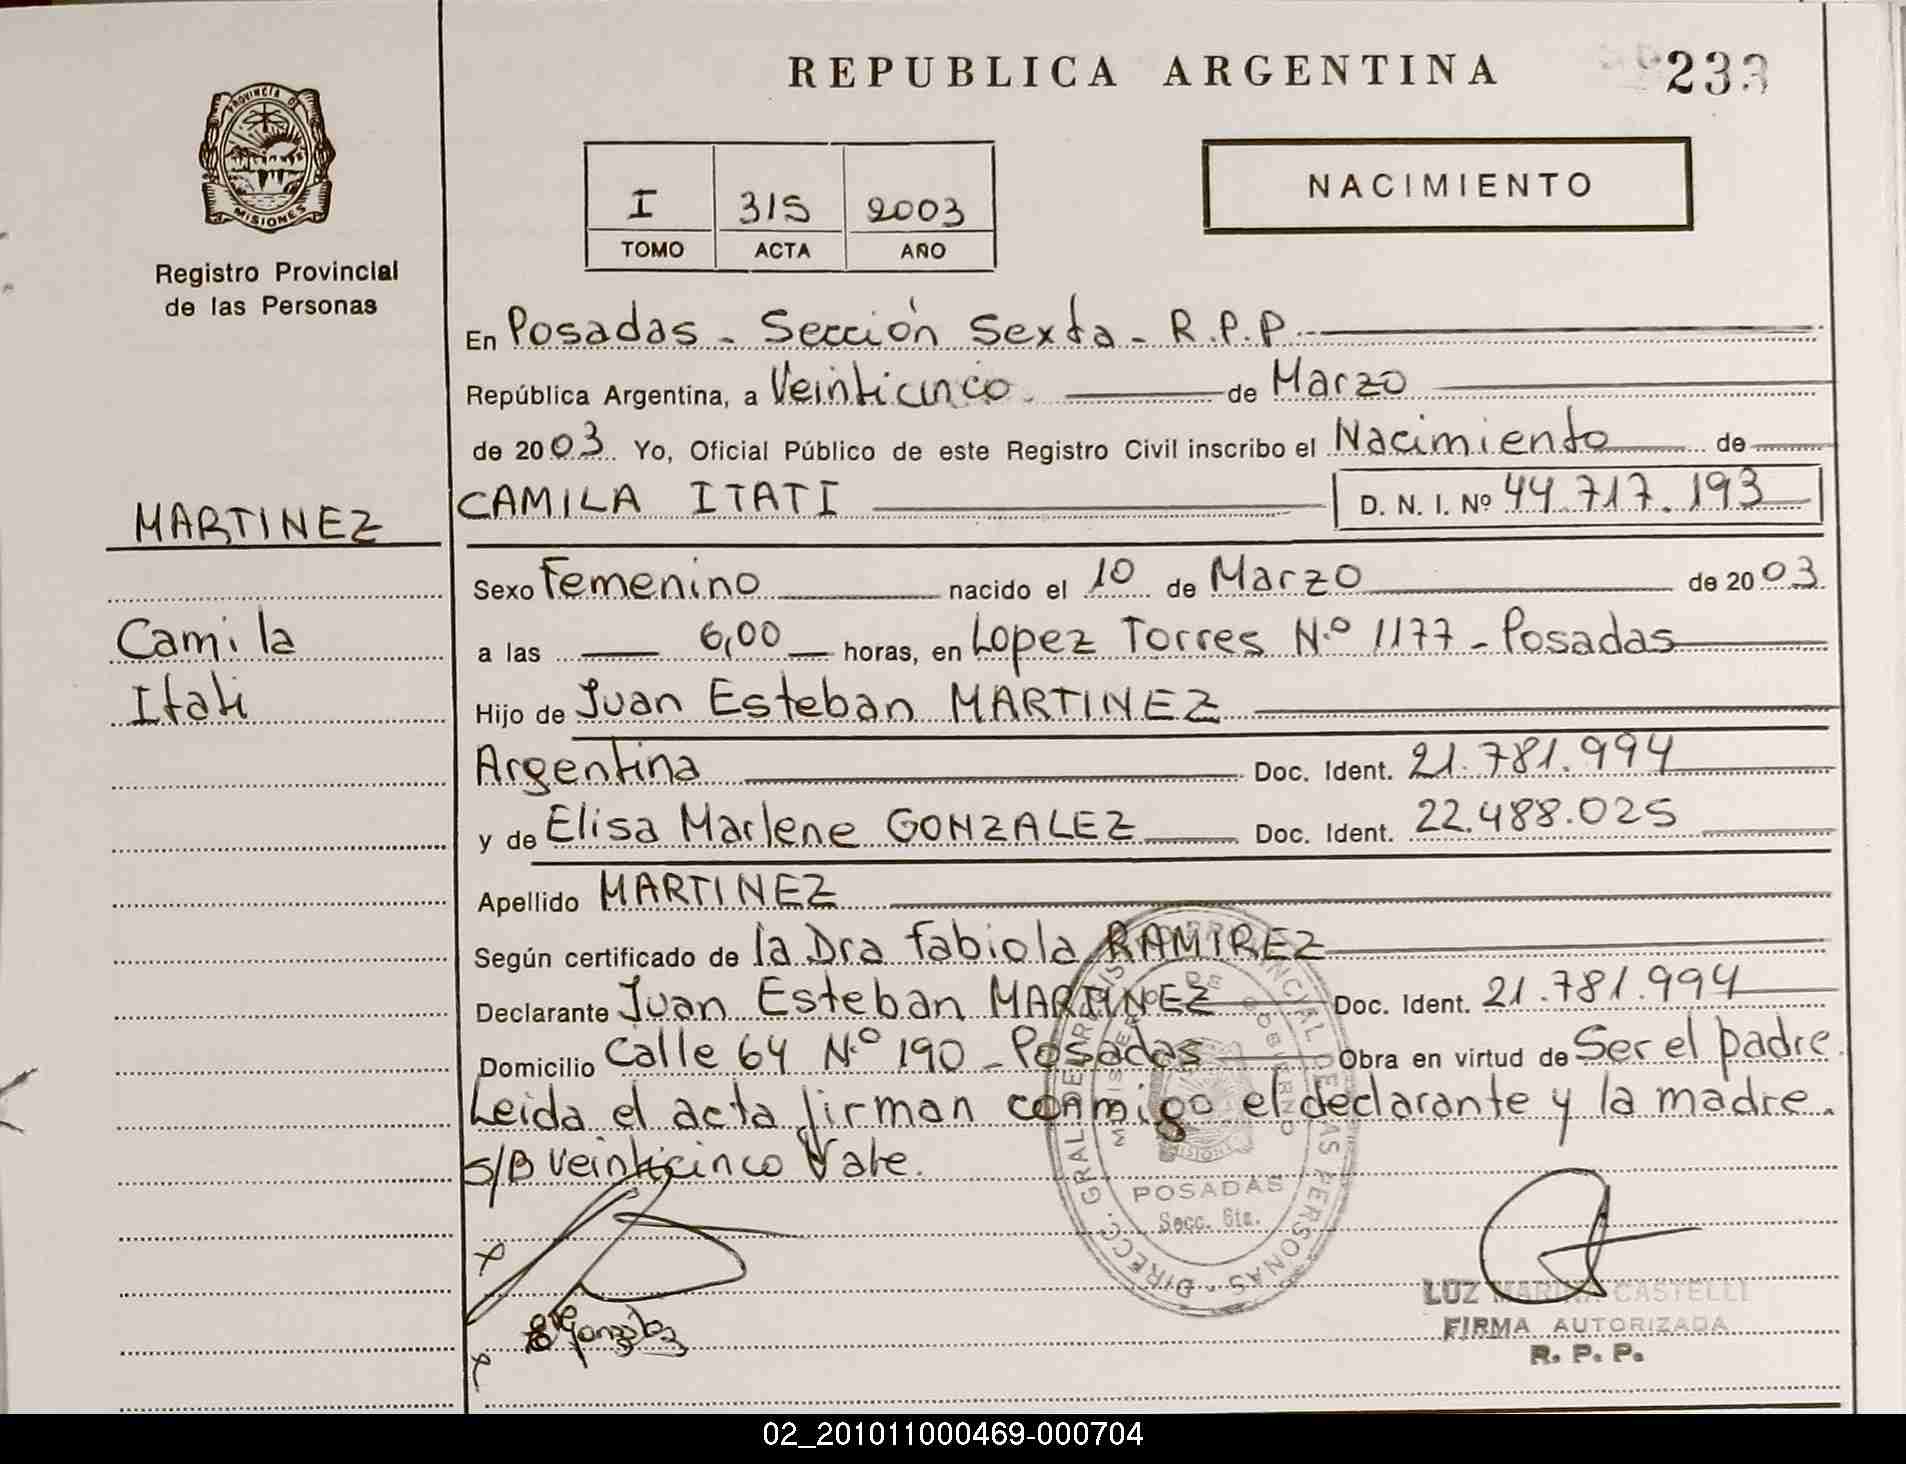 REPUBLICA ARGENTINA
233
PROVINCIA DE
MISIONES
Registro Provincial
de las Personas
I 315 2003
TOMO ACTA AÑO
NACIMIENTO
En Posadas - Sección Sexta - R.P.P.
República Argentina, a Veinticinco de Marzo
de 2003. Yo, Oficial Público de este Registro Civil inscribo el Nacimiento de
CAMILA ITATI D. N. I. Nº 44.717.193
MARTINEZ
Camila
Itati
Sexo Femenino nacido el 10 de Marzo de 2003.
a las 6,00 horas, en Lopez Torres N.º 1177 - Posadas
Hijo de Juan Esteban MARTINEZ
Argentina Doc. Ident. 21.781.994
y de Elisa Marlene GONZALEZ Doc. Ident. 22.488.025
Apellido MARTINEZ
Según certificado de la Dra Fabiola RAMIREZ
Declarante Juan Esteban MARTINEZ Doc. Ident. 21.781.994
Domicilio Calle 64 N.º 190 - Posadas Obra en virtud de Ser el padre.
Leida el acta firman conmigo el declarante y la madre.
S/B Veinticinco Vale.
DIRECC. GRAL. DEL REGISTRO PROVINCIAL DE LAS PERSONAS
MINISTERIO DE GOBIERNO
MISIONES
POSADAS
Secc. 6ta.
Gonzalez
LUZ MARINA CASTELLI
FIRMA AUTORIZADA
R. P. P.
02_201011000469-000704